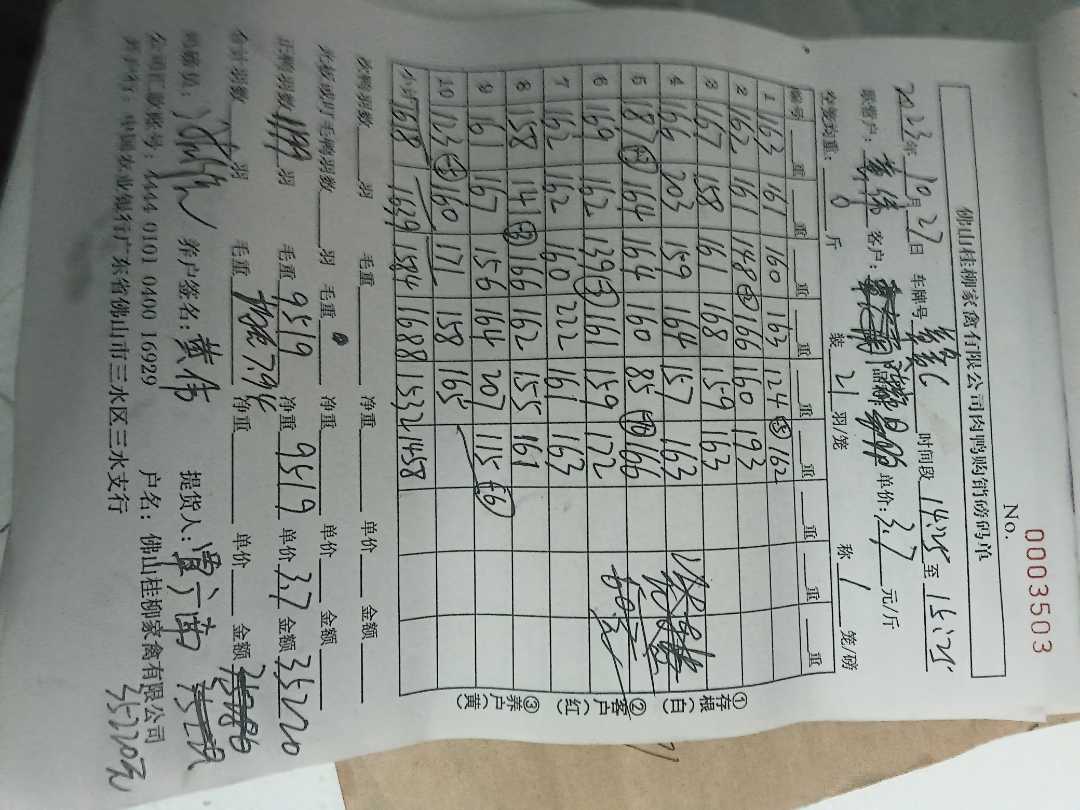 No. 0003503
佛山桂柳家禽有限公司肉鸭购销磅码单
2023年10月27日 车牌号 时间段 14:25 至 15:25
联营户: 黄伟 客户: 单价: 3.7 元/斤
空笼均重: 0 斤 装 21 羽/笼 称 1 笼/磅
编号 重 重 重 重 重 重 重 重 重
1 163 161 160 163 124 162
2 162 161 148 166 160 193
3 167 158 161 168 159 163
4 166 203 159 164 157 163
5 187 164 164 160 85 166
6 169 162 139 161 159 172
7 162 162 160 222 161 163
8 158 141 166 162 155 161
9 161 167 156 164 207 115
10 123 160 171 158 165
小计 1618 1639 1584 1688 1532 1458
60元
①存根(白) ②客户(红) ③养户(黄)
次鸭羽数 羽 毛重 净重 单价 金额
光板或月毛鸭羽数 羽 毛重 净重 单价 金额
正鸭羽数 羽 毛重 9519 净重 9519 单价 3.7 金额 35220
合计羽数 羽 毛重 净重 单价 金额
司磅员: 养户签名: 黄伟 提货人:
公司汇款账号: 4444 0101 0400 16929 户名: 佛山桂柳家禽有限公司
开户行: 中国农业银行广东省佛山市三水区三水支行
35220元